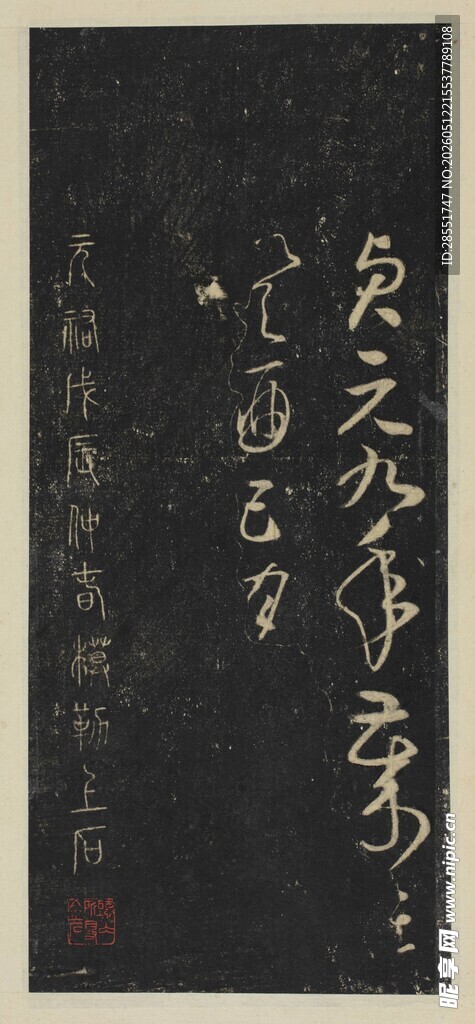 貞元九年歲在
癸酉五月
元祐戊辰仲春模勒上石
ID:28551747 NO:20260512215537789108
昵享网 www.nipic.cn